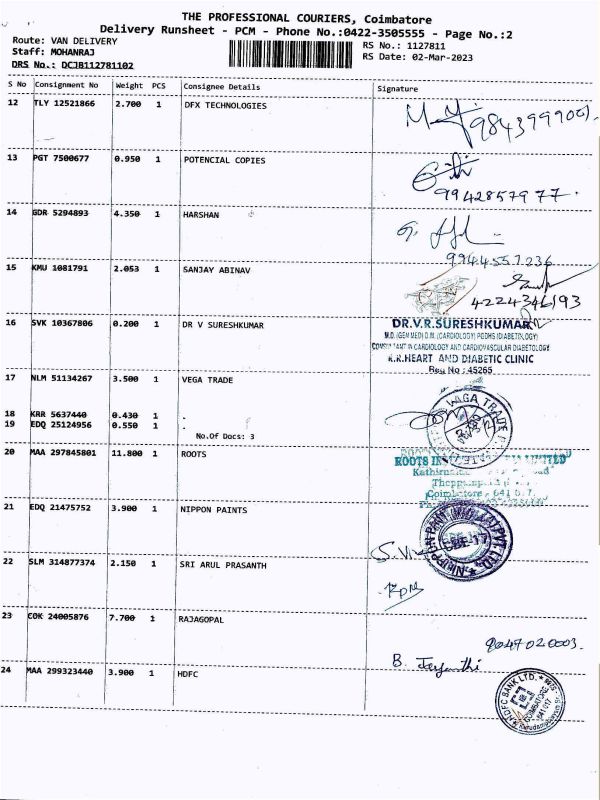 THE PROFESSIONAL COURIERS, Coimbatore
Delivery Runsheet - PCM - Phone No.:0422-3505555 - Page No.:2
Route: VAN DELIVERY
RS No.: 1127811
Staff: MOHANRAJ
RS Date: 02-Mar-2023
DRS No.: DCJB112781102
S No Consignment No Weight PCS Consignee Details Signature
12 TLY 12521866 2.700 1 DFX TECHNOLOGIES
13 PGT 7500677 0.950 1 POTENCIAL COPIES
9942857977.
14 GDR 5294893 4.350 1 HARSHAN
9944557236
15 KMU 1081791 2.053 1 SANJAY ABINAV
4224346193
16 SVK 10367806 0.200 1 DR V SURESHKUMAR
DR.V.R.SURESHKUMAR
M.D. (GEN MED) D.M. (CARDIOLOGY) PGDHS (DIABETOLOGY)
CONSULTANT IN CARDIOLOGY AND CARDIOVASCULAR DIABETOLOGY
K.R.HEART AND DIABETIC CLINIC
Reg No : 45265
17 NLM 51134267 3.500 1 VEGA TRADE
18 KRR 5637440 0.430 1 .
19 EDQ 25124956 0.550 1 .
No.Of Docs: 3
20 MAA 297845801 11.800 1 ROOTS
ROOTS LIMITED
Coimbatore - 641
21 EDQ 21475752 3.900 1 NIPPON PAINTS
NIPPON PAINT (INDIA) PVT. LTD.
22 SLM 314877374 2.150 1 SRI ARUL PRASANTH
23 COK 24005876 7.700 1 RAJAGOPAL
9047020003.
B. Jayanthi
24 MAA 299323440 3.900 1 HDFC
HDFC BANK LTD.
COIMBATORE
641017